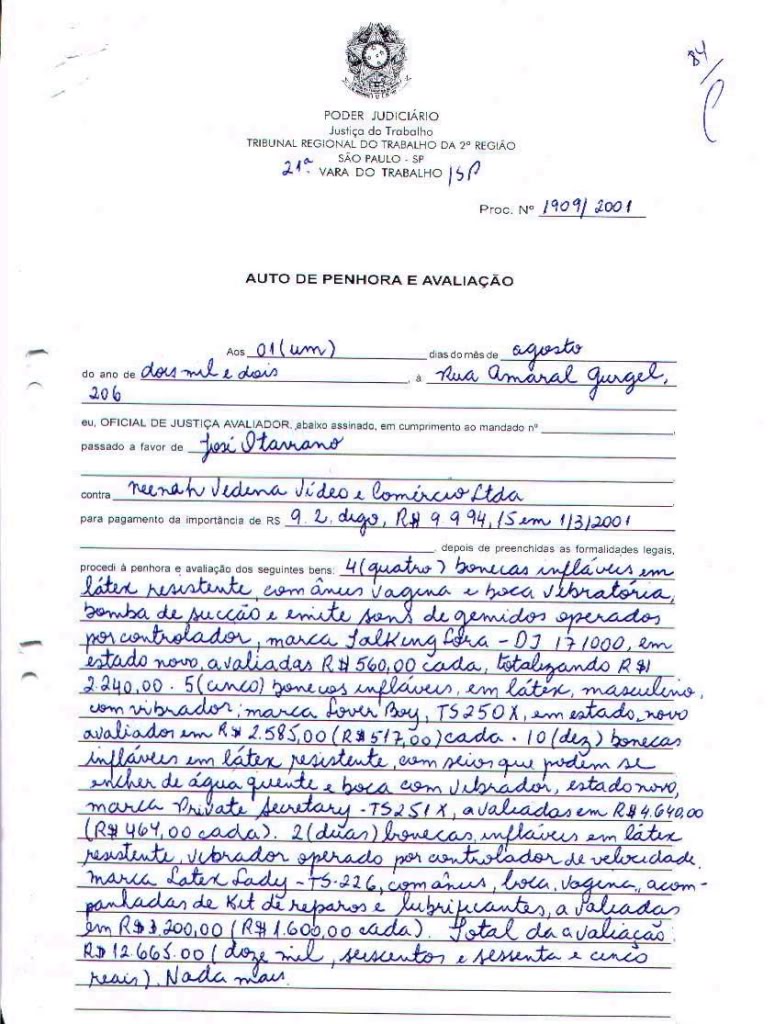 84
PODER JUDICIÁRIO
Justiça do Trabalho
TRIBUNAL REGIONAL DO TRABALHO DA 2ª REGIÃO
SÃO PAULO - SP
21ª VARA DO TRABALHO /SP
Proc. Nº 1909/2001
AUTO DE PENHORA E AVALIAÇÃO
Aos 01 (um) dias do mês de agosto
do ano de dois mil e dois, à Rua Amaral Gurgel,
206
eu, OFICIAL DE JUSTIÇA AVALIADOR, abaixo assinado, em cumprimento ao mandado nº
passado a favor de José
contra Vídeo e Comércio Ltda
para pagamento da importância de R$ 9.2. digo, R$ 9994,15 em 1/3/2001
, depois de preenchidas as formalidades legais,
procedi à penhora e avaliação dos seguintes bens: 4 (quatro) bonecas infláveis em
látex resistente, com ânus vagina e boca vibratória,
bomba de sucção e emite sons de gemidos operados
por controlador, marca TalKing Lora - DJ 171000, em
estado novo, avaliadas R$ 560,00 cada, totalizando R$
2.240,00. 5 (cinco) bonecos infláveis, em látex, masculino,
com vibrador, marca Lover Boy, TS250X, em estado novo
avaliados em R$ 2.585,00 (R$ 517,00) cada. 10 (dez) bonecas
infláveis em látex resistente, com seios que podem se
encher de água quente e boca com vibrador, estado novo,
marca Private Secretary - TS251X, avaliadas em R$ 4.640,00
(R$ 464,00 cada). 2 (duas) bonecas infláveis em látex
resistente, vibrador operado por controlador de velocidade,
marca Latex Lady - TS-226, com ânus, boca, vagina, acom-
panhadas de Kit de reparos e lubrificantes, avaliadas
em R$ 3.200,00 (R$ 1.600,00 cada). Total da avaliação:
R$ 12.665.00 (doze mil, seiscentos e sessenta e cinco
reais). Nada mais.